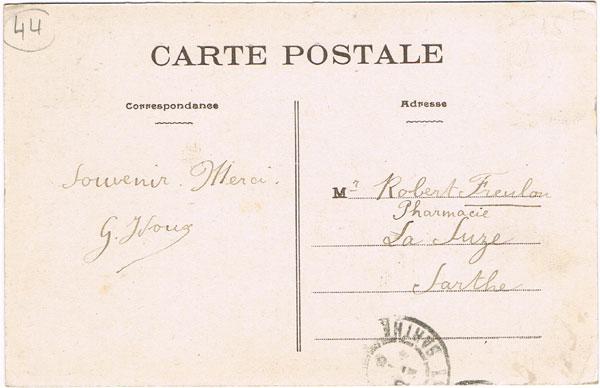 44
CARTE POSTALE
Correspondance
Adresse
Souvenir. Merci.
G.
Mr Robert Freulon
Pharmacie
La Suze
Sarthe
SARTHE